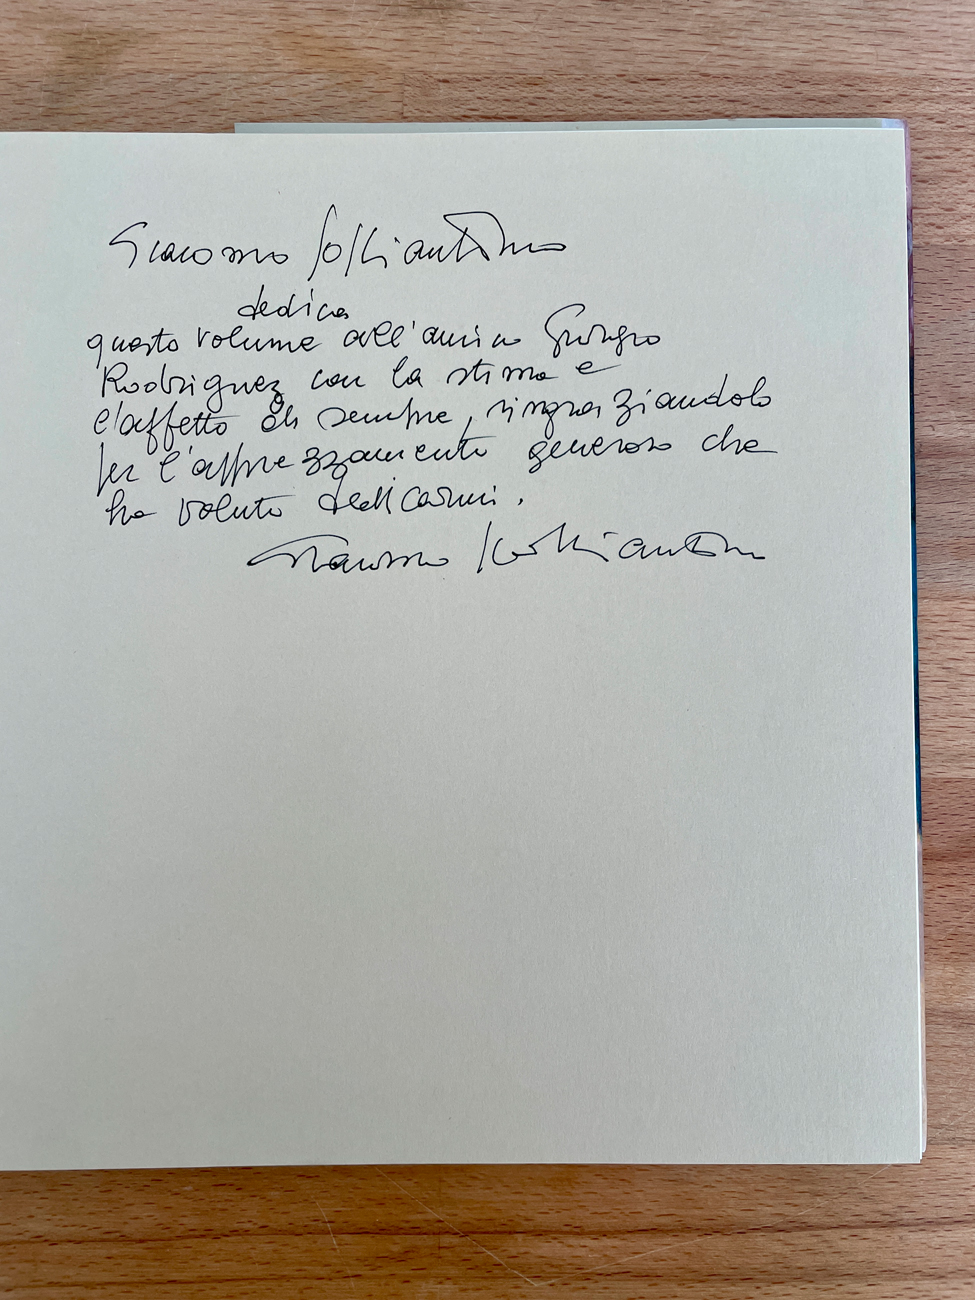 Giacomo Soffiantino
dedica
questo volume all'amico Giorgio
Rodriguez con la stima e
l'affetto di sempre, ringraziandolo
per l'apprezzamento generoso che
ha voluto dedicarmi.
Giacomo Soffiantino